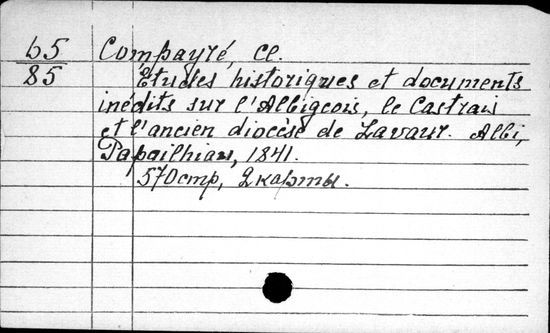 65 Compayré, Cl.
85 Études historiques et documents
inédits sur l'Albigeois, le Castrais
et l'ancien diocèse de Lavaur. Albi,
Papailhiau, 1841.
570стр, 2карты.